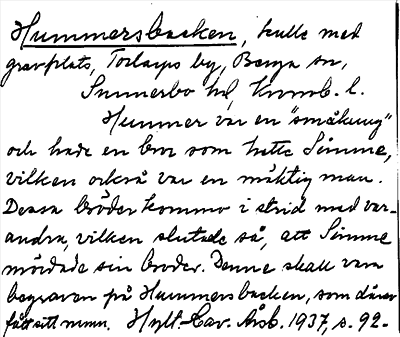 Hummersbacken, kulle med
gravplats, Torlarps by, Berga sn,
Sunnerbo hd, Kronob. l.
Hummer var en "småkung"
och hade en bror som hette Simme,
vilken också var en mäktig man.
Dessa bröder kommo i strid med var-
andra, vilken slutade så, att Simme
mördade sin broder. Denne skall vara
begraven på Hummersbacken, som därav
fått sitt namn. Hylt.-Cav. Årsb. 1937, s. 92.